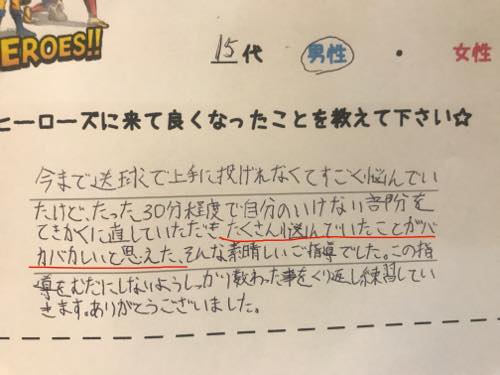 EROES!!
15代 男性 ・ 女性
ヒーローズに来て良くなったことを教えて下さい☆
今まで送球で上手に投げれなくてすごく悩んでい
たけど、たった30分程度で自分のいけない部分を
てきかくに直していただき たくさん悩んでいたことがバ
カバカしいと思えた、そんな素晴しいご指導でした。この指
導をむだにしないようしっかり教わった事をくり返し練習してい
きます。ありがとうございました。